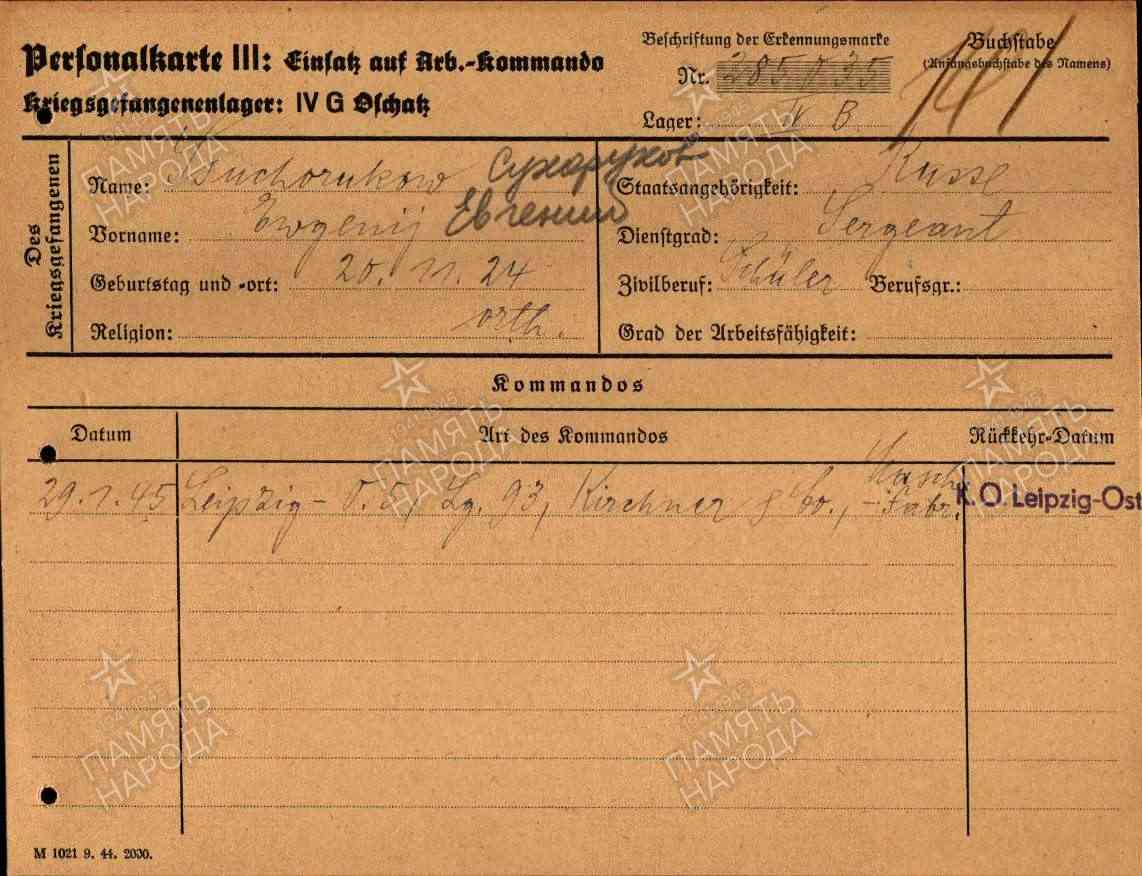 Personalkarte III: Einsatz auf Arb.-Kommando
Kriegsgefangenenlager: IV G Oschatz
Beschriftung der Erkennungsmarke
Nr. 285035
Lager: IV B
Buchstabe
(Anfangsbuchstabe des Namens)
Des Kriegsgefangenen
Name: Suchorukow Сухоруков
Vorname: Ewgenij Евгений
Geburtstag und -ort: 20. 11. 24
Religion: orth.
Staatsangehörigkeit: Russe
Dienstgrad: Sergeant
Zivilberuf: Schüler Berufsgr.:
Grad der Arbeitsfähigkeit:
Kommandos
Datum Art des Kommandos Rückkehr-Datum
29. 1. 45 Leipzig - O. 5, Lg. 93, Kirchner & Co., Masch.-Fabr. K. O. Leipzig-Ost
M 1021 9. 44. 2000.
1941-1945
ПАМЯТЬ
НАРОДА